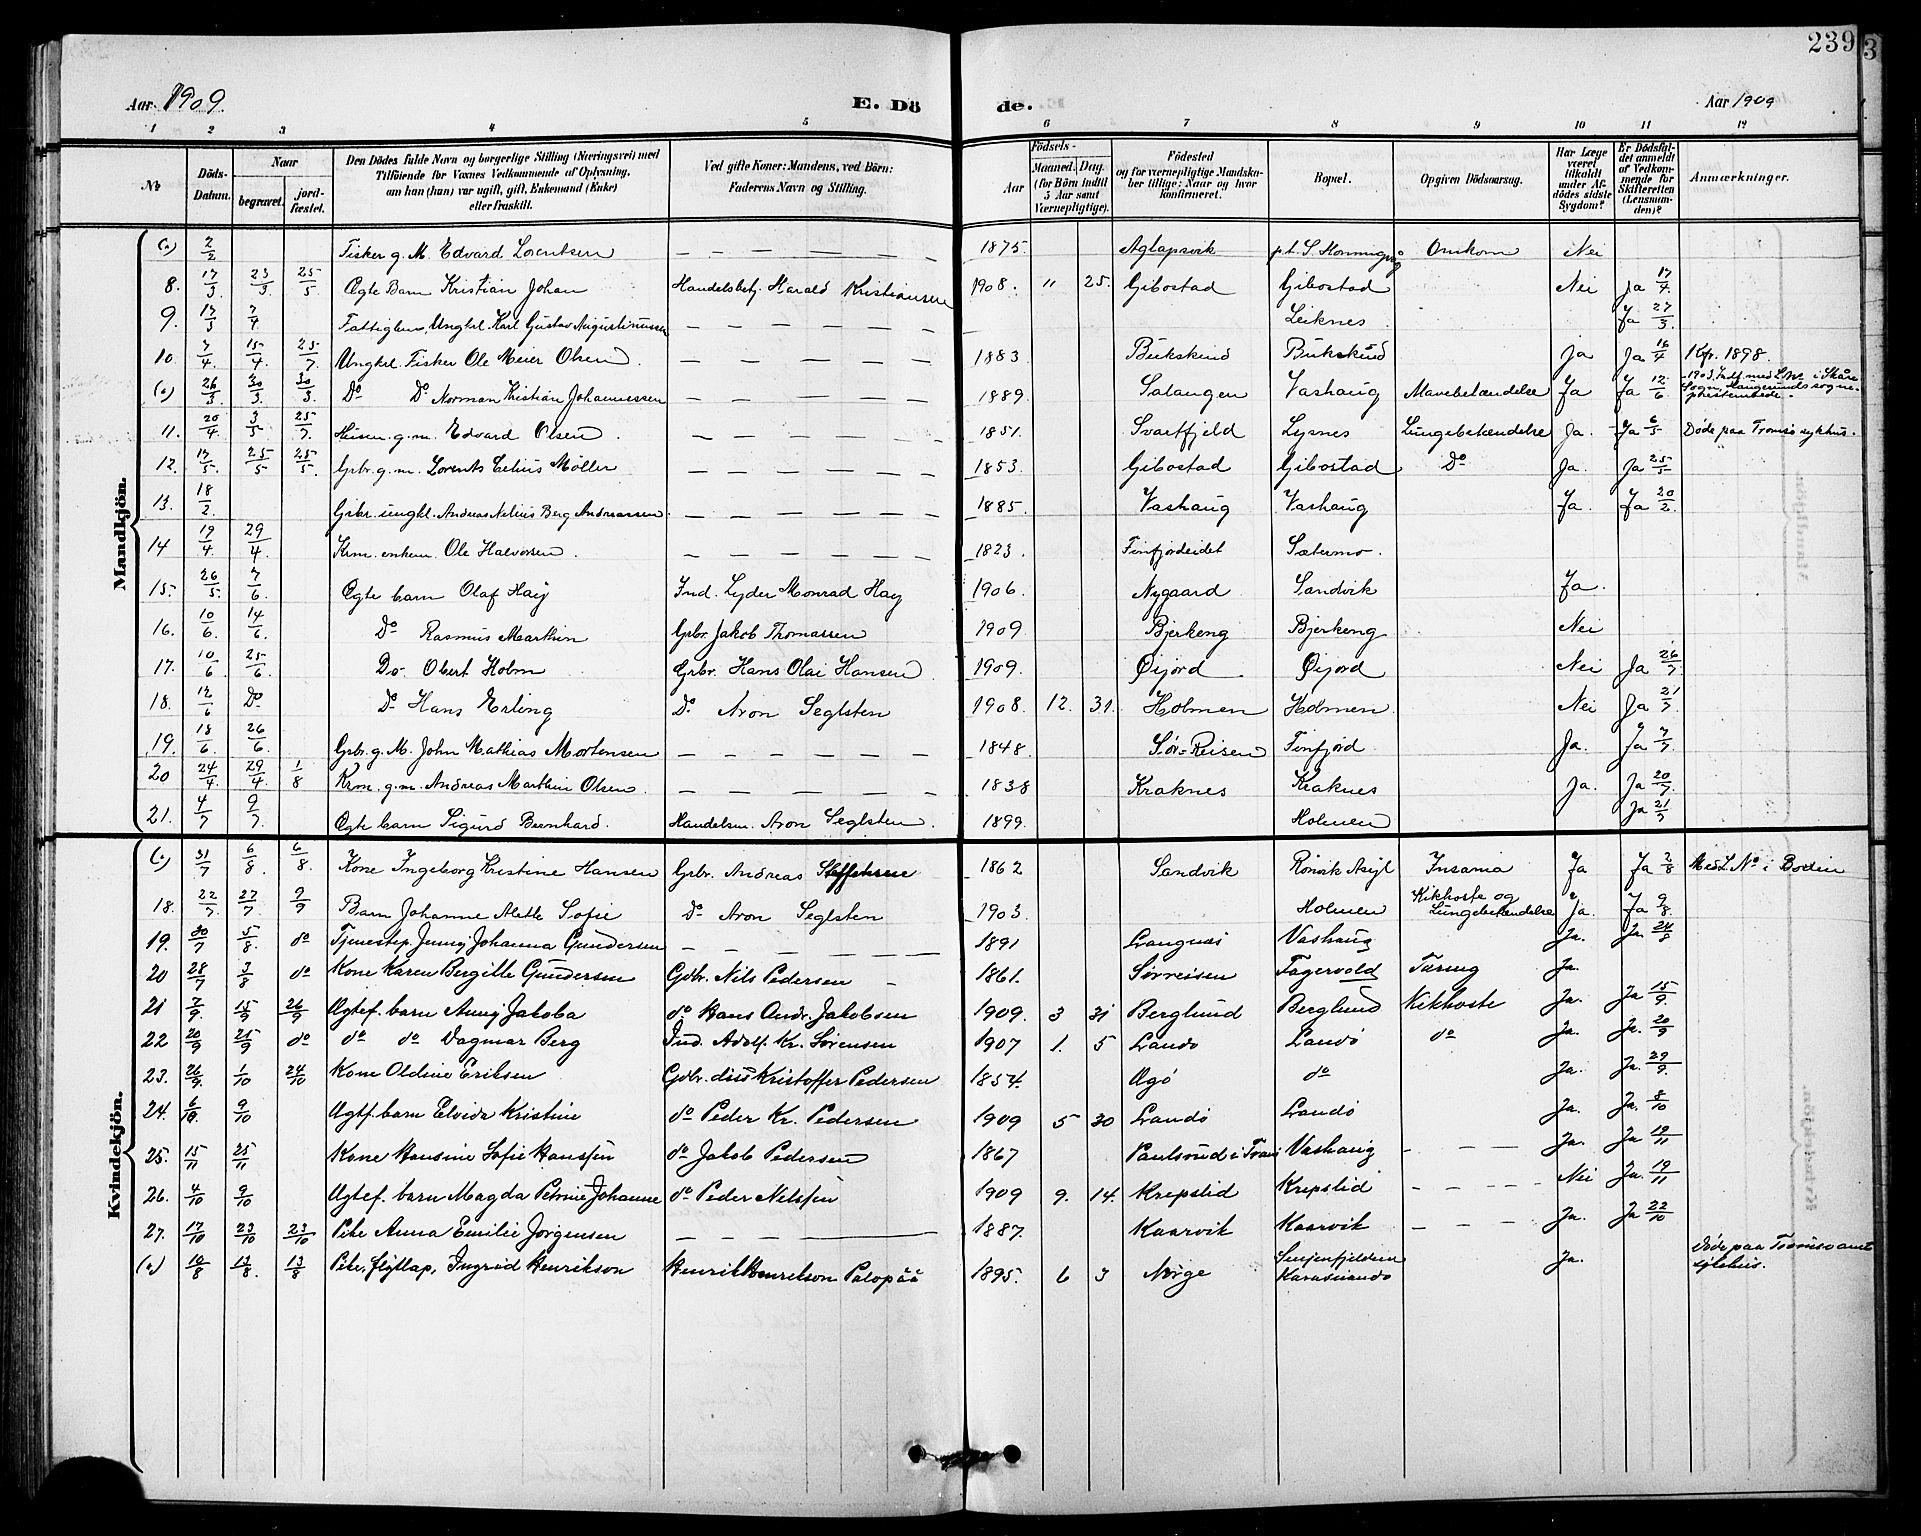 239
3
Aar 1909.
E. Dö
de.
Aar 1909
1 2 3 4 5 6 7 8 9 10 11 12
No
Döds-Datum.
Naar
begravet.
jord-fæstet.
Den Dödes fulde Navn og borgerlige Stilling (Næringsvei) med
Tilföiende for Voxnes Vedkommende af Oplysning,
om han (hun) var ugift, gift, Enkemand (Enke)
eller fraskilt.
Ved gifte Koner: Mandens, ved Börn:
Faderens Navn og Stilling.
Födsels-
Aar
Maaned. Dag.
(for Börn indtil
5 Aar samt
Værnepligtige).
Födested
og for værnepligtige Mandska-
ber tillige: Naar og hvor
konfirmeret.
Bopæl.
Opgiven Dödsaarsag.
Har Læge
været
tilkaldt
under Af-
dödes sidste
Sygdom?
Er Dödsfal-
det anmeldt
af Vedkom-
mende for
Skifteretten
(Lensman-
den)?
Anmærkninger.
Mandkjön.
(a) 2/2 Fisker g. M. Edvard Lorentsen — — — — 1875 Aglapsvik Omkom Nei
8. 17/3 23/3 25/5 Ægte Barn Kristian Johan Handelsbetj. Harald Kristiansen 1908. " 25. Gibostad Gibostad Nei Ja 17/4
9. 17/3 7/4 Ungkrl. Karl Gustav Augustinussen — — — — Leiknes Ja 27/3
10. 7/4 15/4 25/7 Ungkrl. Fisker Ole Meier Olsen — — — — 1883 Bukskind Bukskind Ja Ja 16/4 Kfr. 1898.
(a) 26/3 30/3 30/3 Do Do Norman Kristian Johannessen — — — — 1889 Salangen Vashaug Mavebetændelse Ja Ja 12/6
11. 20/4 3/5 25/7 g. m. Edvard Olsen — — — — 1851. Svartfjeld Lysnes Lungebetændelse Ja. Ja 6/5 Döde paa Tromsö sykhus.
12. 17/5 25/5 25/5 Grbr. g. m. Lorents Møller — — — — 1853. Gibostad Gibostad Do Ja. Ja 25/5
13. 18/2 Grbr. ungkl. Andreas Nelius Berg Andreassen — — — — 1885. Vashaug Vashaug Ja. Ja 20/2
14 19/4 29/4 Krm. enkem. Ole Halvorsen — — — — 1823. Finfjordeidet Sætermo.
15. 26/5 7/6 Ægte barn Olaf Haij Ind. Lyder Monrad Hay 1906. Nygaard Sandvik Ja.
16. 10/6 14/6 Do Rasmus Marthin Grbr. Jakob Thomassen 1909. Bjerkeng Bjerkeng Nei
17. 10/6 25/6 Do. Obert Holm Grbr. Hans Olai Hansen 1909. Øijord Øijord Nei Ja 26/7
18. 12/6 Do Do Hans Erling Do Aron Seglsten 1908. 12. 31. Holmen Holmen Nei Ja 21/7
19. 18/6 26/6 Grbr. g. M. John Mathias Mortensen — — — — 1848. Sør-Reisen Finfjord Ja. Ja 7/7
20 24/4 29/4 1/8 Krm. g. m. Andreas Marthin Olsen — — — — 1838 Kraknes Kraknes Ja. Ja 20/7
21. 4/7 9/7 Ægte barn Sigurd Bernhard. Handelsm. Aron Seglsten. 1899. Holmen Ja 21/7
Kvindekjön.
(a) 31/7 6/8 6/8 Kone Ingeborg Kristine Hansen Grbr. Andreas Steffensen 1862 Sandvik Rönvik Asyl Insania Ja Ja 2/8 Med L. No i Bodin
18. 22/7 27/7 2/9 Barn Johanne Alette Sofie Do Aron Seglsten 1903. Holmen Kikhoste og Lungebetændelse Ja. Ja 9/8
19. 30/7 5/8 do Tjenestep. Jenny Johanna Gundersen — — — — 1891 Langnes Vashaug Ja. Ja. 24/8
20 28/7 3/8 do Kone Karen Bergitte Gundersen Gdbr. Nils Pedersen 1861. Sörreisen Fagervold Tæring Ja.
21 7/9. 15/9 26/9 Ægtef. barn Anny Jakoba do Hans Andr. Jakobsen 1909. 3 31 Berglund Berglund Kikhoste Ja. Ja 15/9.
22 20/9 25/9 do do do Dagmar Berg Ind. Adolf Kr. Sørensen 1907 1. 5 Landö Landö do Ja. Ja. 20/9
23. 26/9. 1/10 24/10 Kone Oldine Eriksen Gdbr. Kristoffer Pedersen 1854. Agö do Ja. Ja. 29/9.
24. 6/10. 9/10 Ægtf. barn Elvida Kristine do Peder Kr. Pedersen 1909 5 30 Landö Landö Ja. Ja. 8/10
25. 15/11 25/11 Kone Hansine Sofie Hanssen do Jakob Pedersen 1867 Paulsrud i Trani Vashaug - — — Ja. Ja 19/11
26. 4/10 9/10 Ægtef. barn Magda Petrine Johanne do Peder Nilssen 1909 9. 14. Krepslid Krepslid - - - - Nei Ja. 19/11
27. 17/10 23/10 23/10 Pike Anna Emilie Jörgensen — — — — 1887. Kaarvik Kaarvik - — — Ja. Ja 22/10
(a) 10/8 13/8. 13/8 Pike, flyttlap, Ingrid Henrikson Henrik Henrikson Palopää 1895. 6 3 Norge Senjenfjeldene Karasuando Ja. Döde paa Tromsö amt sykehus.